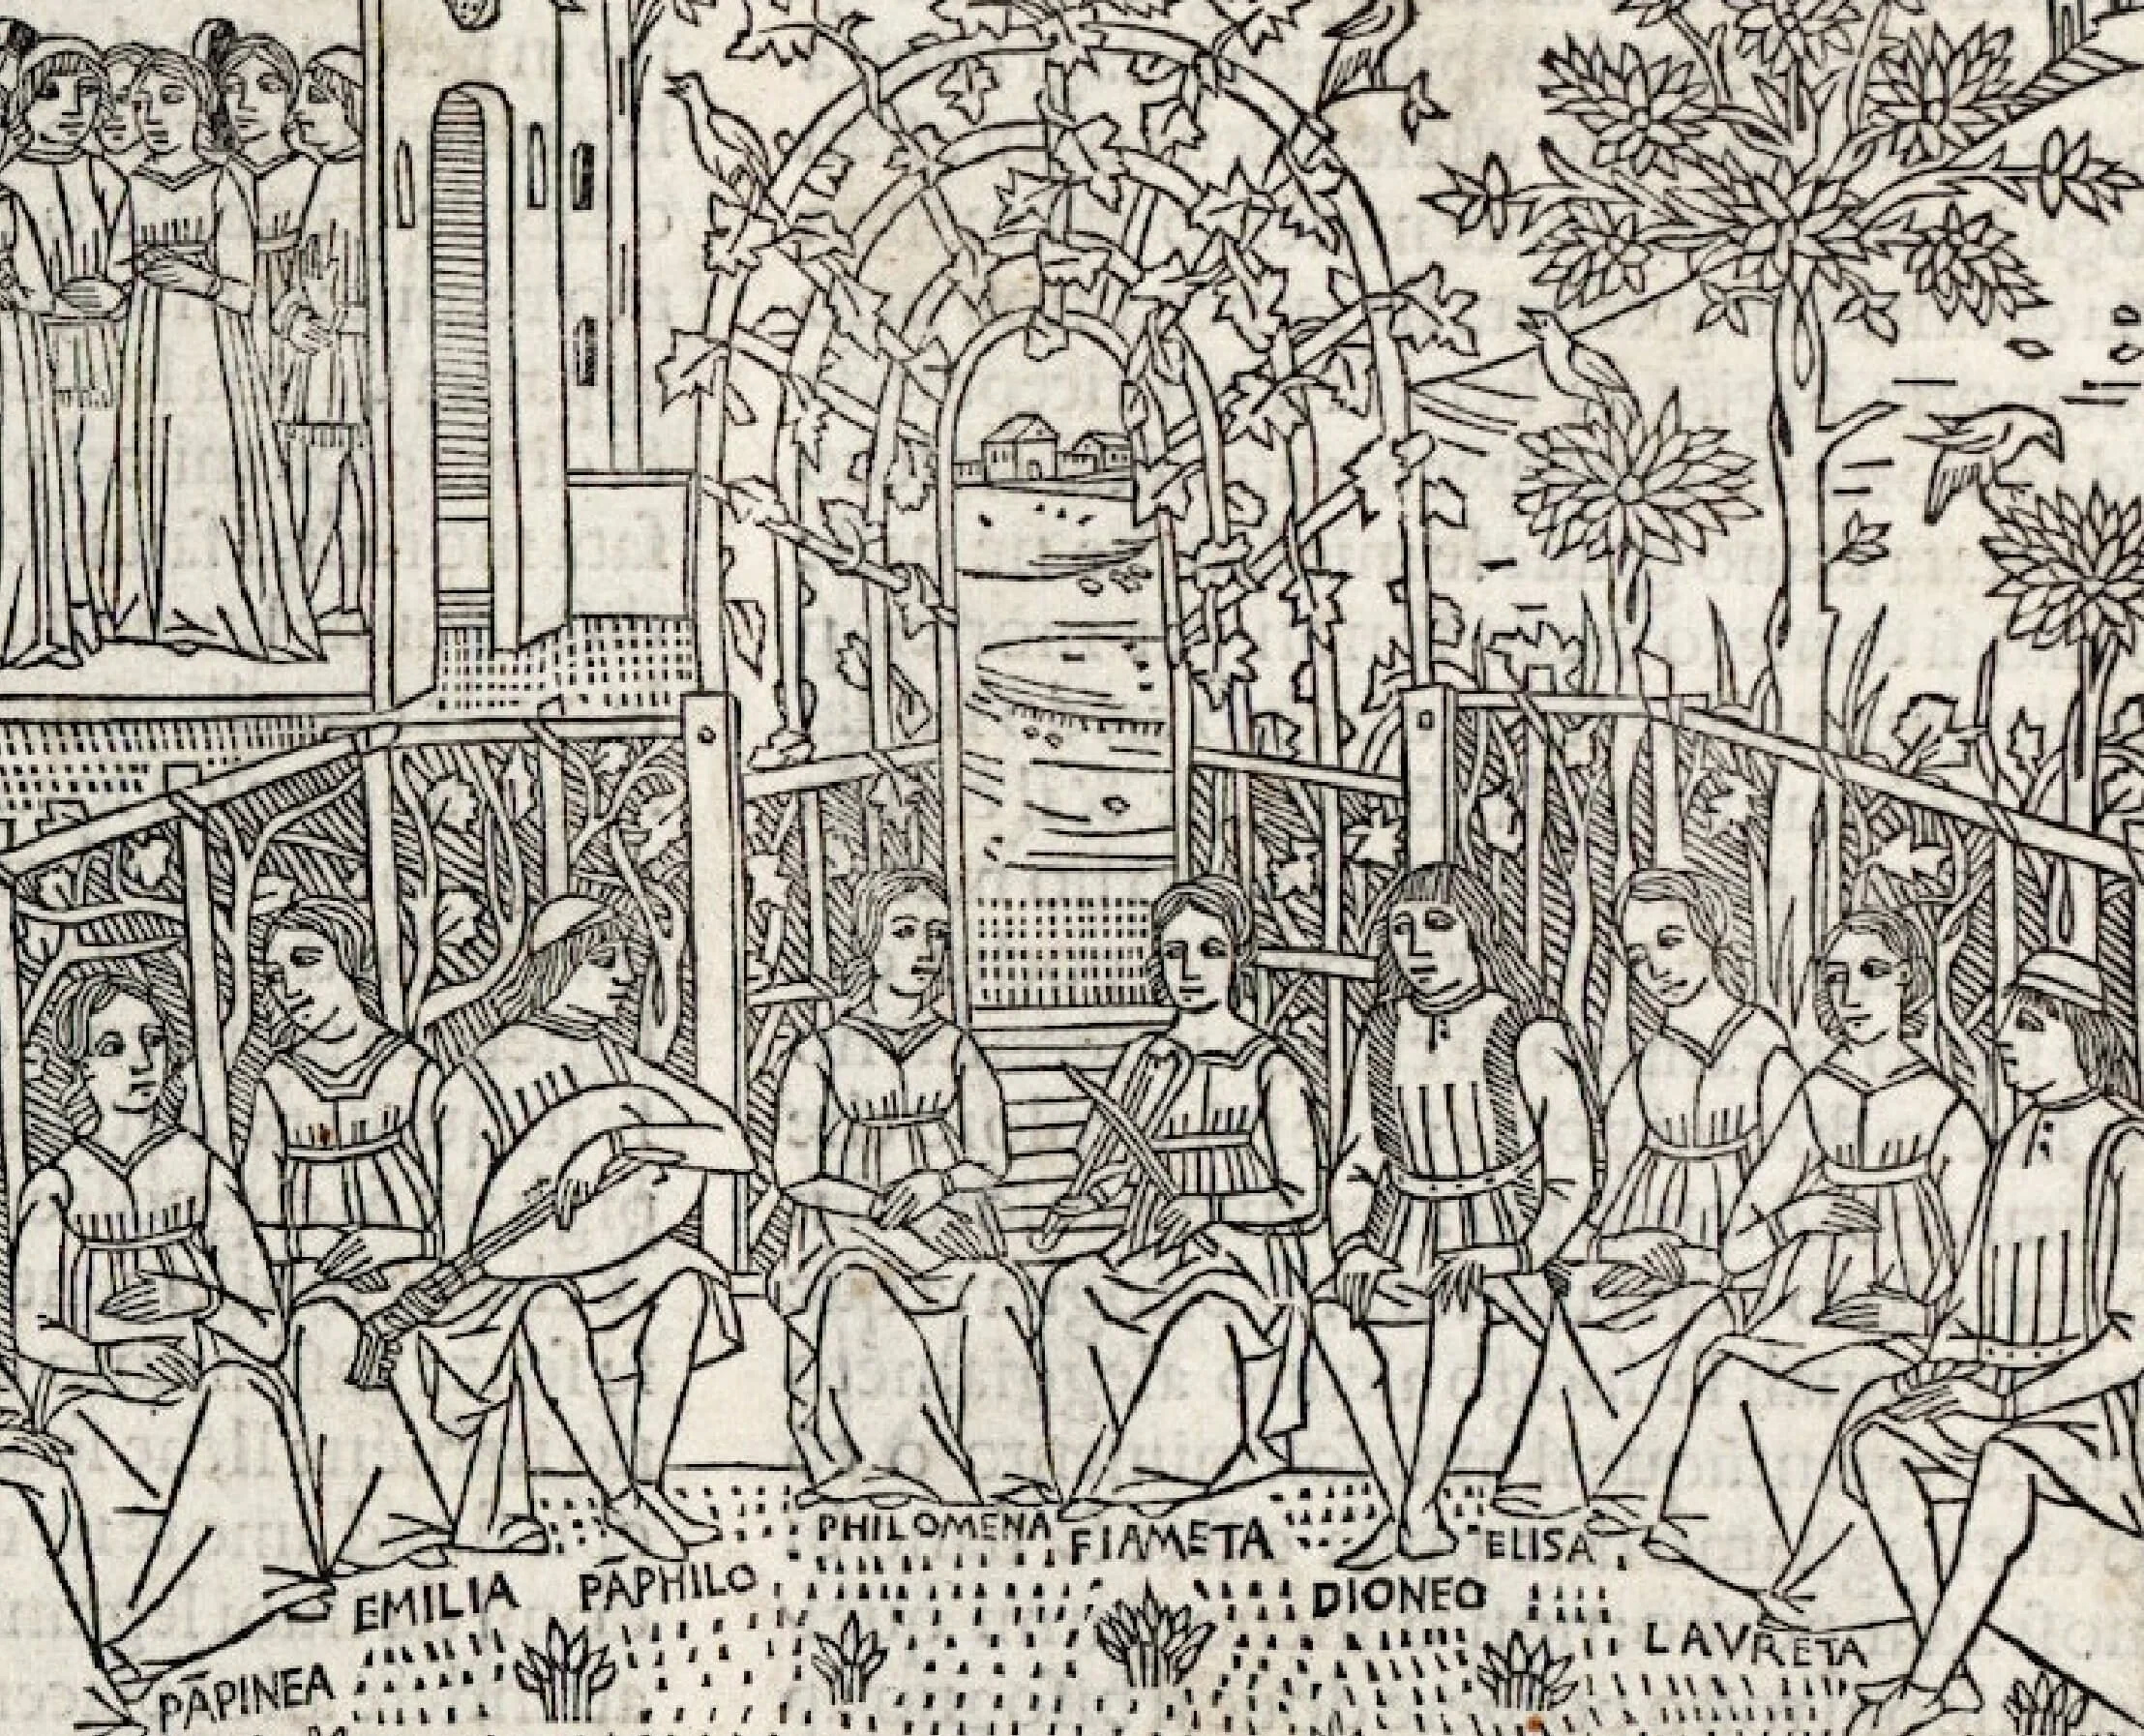 PHILOMENA
FIAMETA
ELISA
EMILIA
PĀPHILO
DIONEO
LAVRETA
PĀPINEA